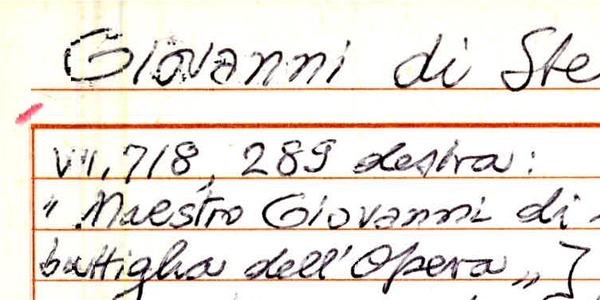 Giovanni di Ste
VII, 7/8, 289 destra:
"Maestro Giovanni di
battiglia dell'Opera„]